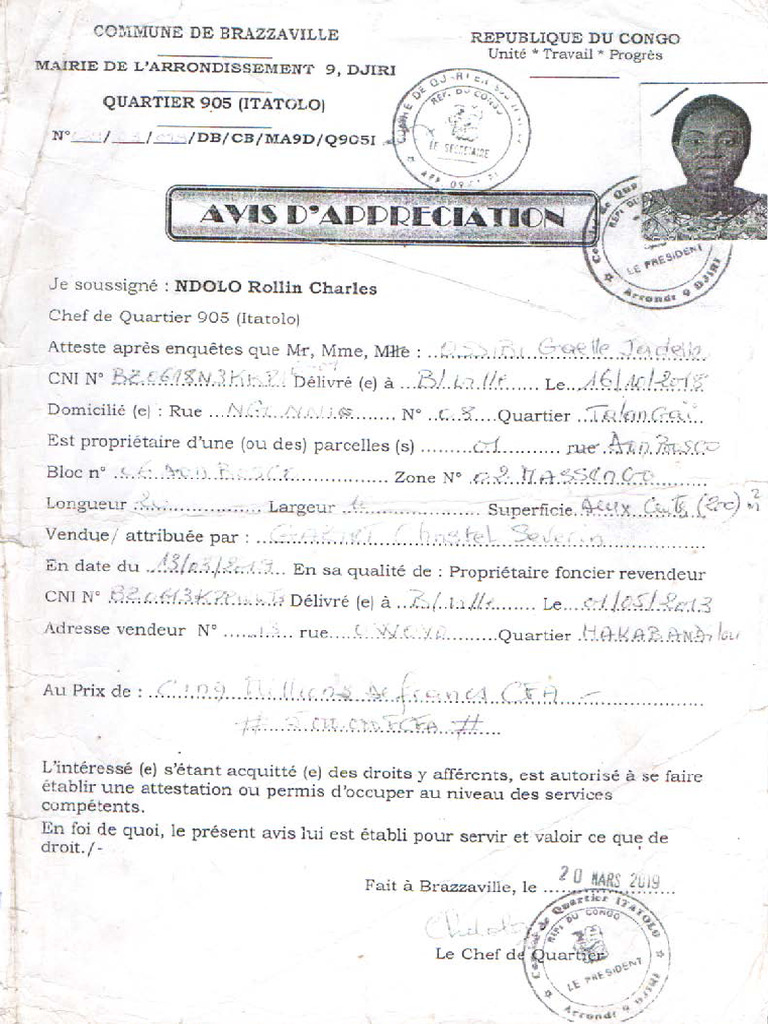 COMMUNE DE BRAZZAVILLE
MAIRIE DE L'ARRONDISSEMENT 9, DJIRI
QUARTIER 905 (ITATOLO)
N° / / /DB/CB/MA9D/Q905I
REPUBLIQUE DU CONGO
Unité * Travail * Progrès
REP. DU CONGO
LE SECRETAIRE
LE PRESIDENT
Arrondt 9 DJIRI
AVIS D'APPRECIATION
Je soussigné : NDOLO Rollin Charles
Chef de Quartier 905 (Itatolo)
Atteste après enquêtes que Mr, Mme, Mlle : Gaelle
CNI N° Délivré (e) à B/ville Le 16/10/2018
Domicilié (e) : Rue N° 08 Quartier Talangaï
Est propriétaire d'une (ou des) parcelles (s) 01 rue Don Bosco
Bloc n° Zone N° 02 MASSENGO
Longueur Largeur Superficie Deux Cents m²
Vendue/ attribuée par : Christel Severin
En date du 13/03/2019 En sa qualité de : Propriétaire foncier revendeur
CNI N° Délivré (e) à B/ville Le 01/05/2013
Adresse vendeur N° 13 rue Quartier
Au Prix de : Cinq Millions de francs CFA
# FCFA #
L'intéressé (e) s'étant acquitté (e) des droits y afférents, est autorisé à se faire
établir une attestation ou permis d'occuper au niveau des services
compétents.
En foi de quoi, le présent avis lui est établi pour servir et valoir ce que de
droit./-
Fait à Brazzaville, le 20 MARS 2019
Le Chef de Quartier
Comité de Quartier ITATOLO
REP. DU CONGO
LE PRESIDENT